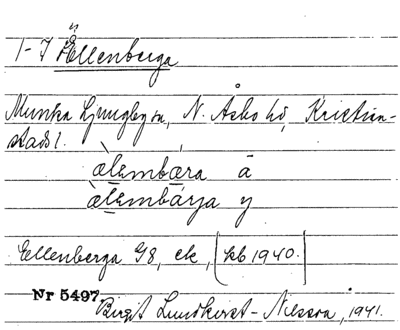 1-7 Ellenberga
Munka Ljungby sn, N. Åsbo hd, Kristian-
stads l.
ælembæra ā
ælembárja y
Ellenberga G8, ek, [kb 1940.]
Nr 5497
Birgit Lundkvist-Nilsson, 1941.